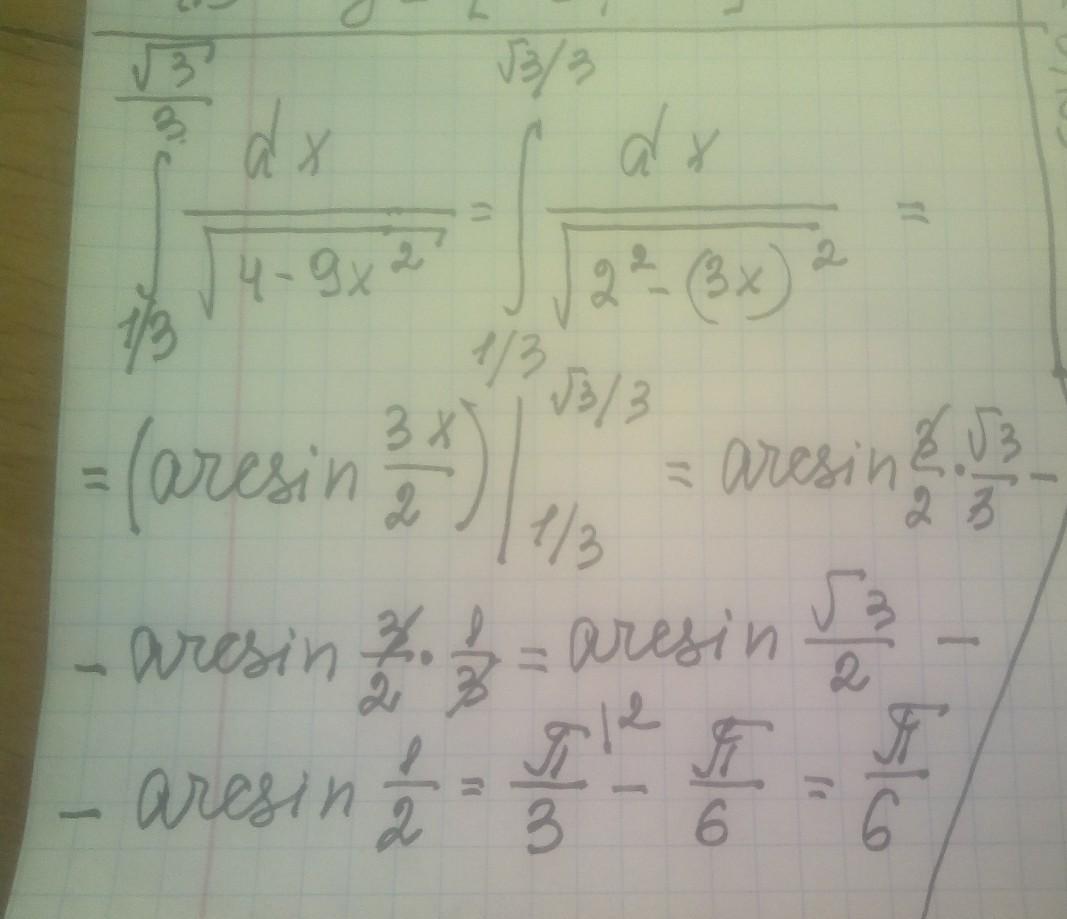 √3/3 ∫ 1/3 dx / √(4 - 9x²) = √3/3 ∫ 1/3 dx / √(2² - (3x)²) =
= (arcsin 3x/2) | √3/3 1/3 = arcsin 3/2 · √3/3 -
- arcsin 3/2 · 1/3 = arcsin √3/2 -
- arcsin 1/2 = π/3 |2 - π/6 = π/6